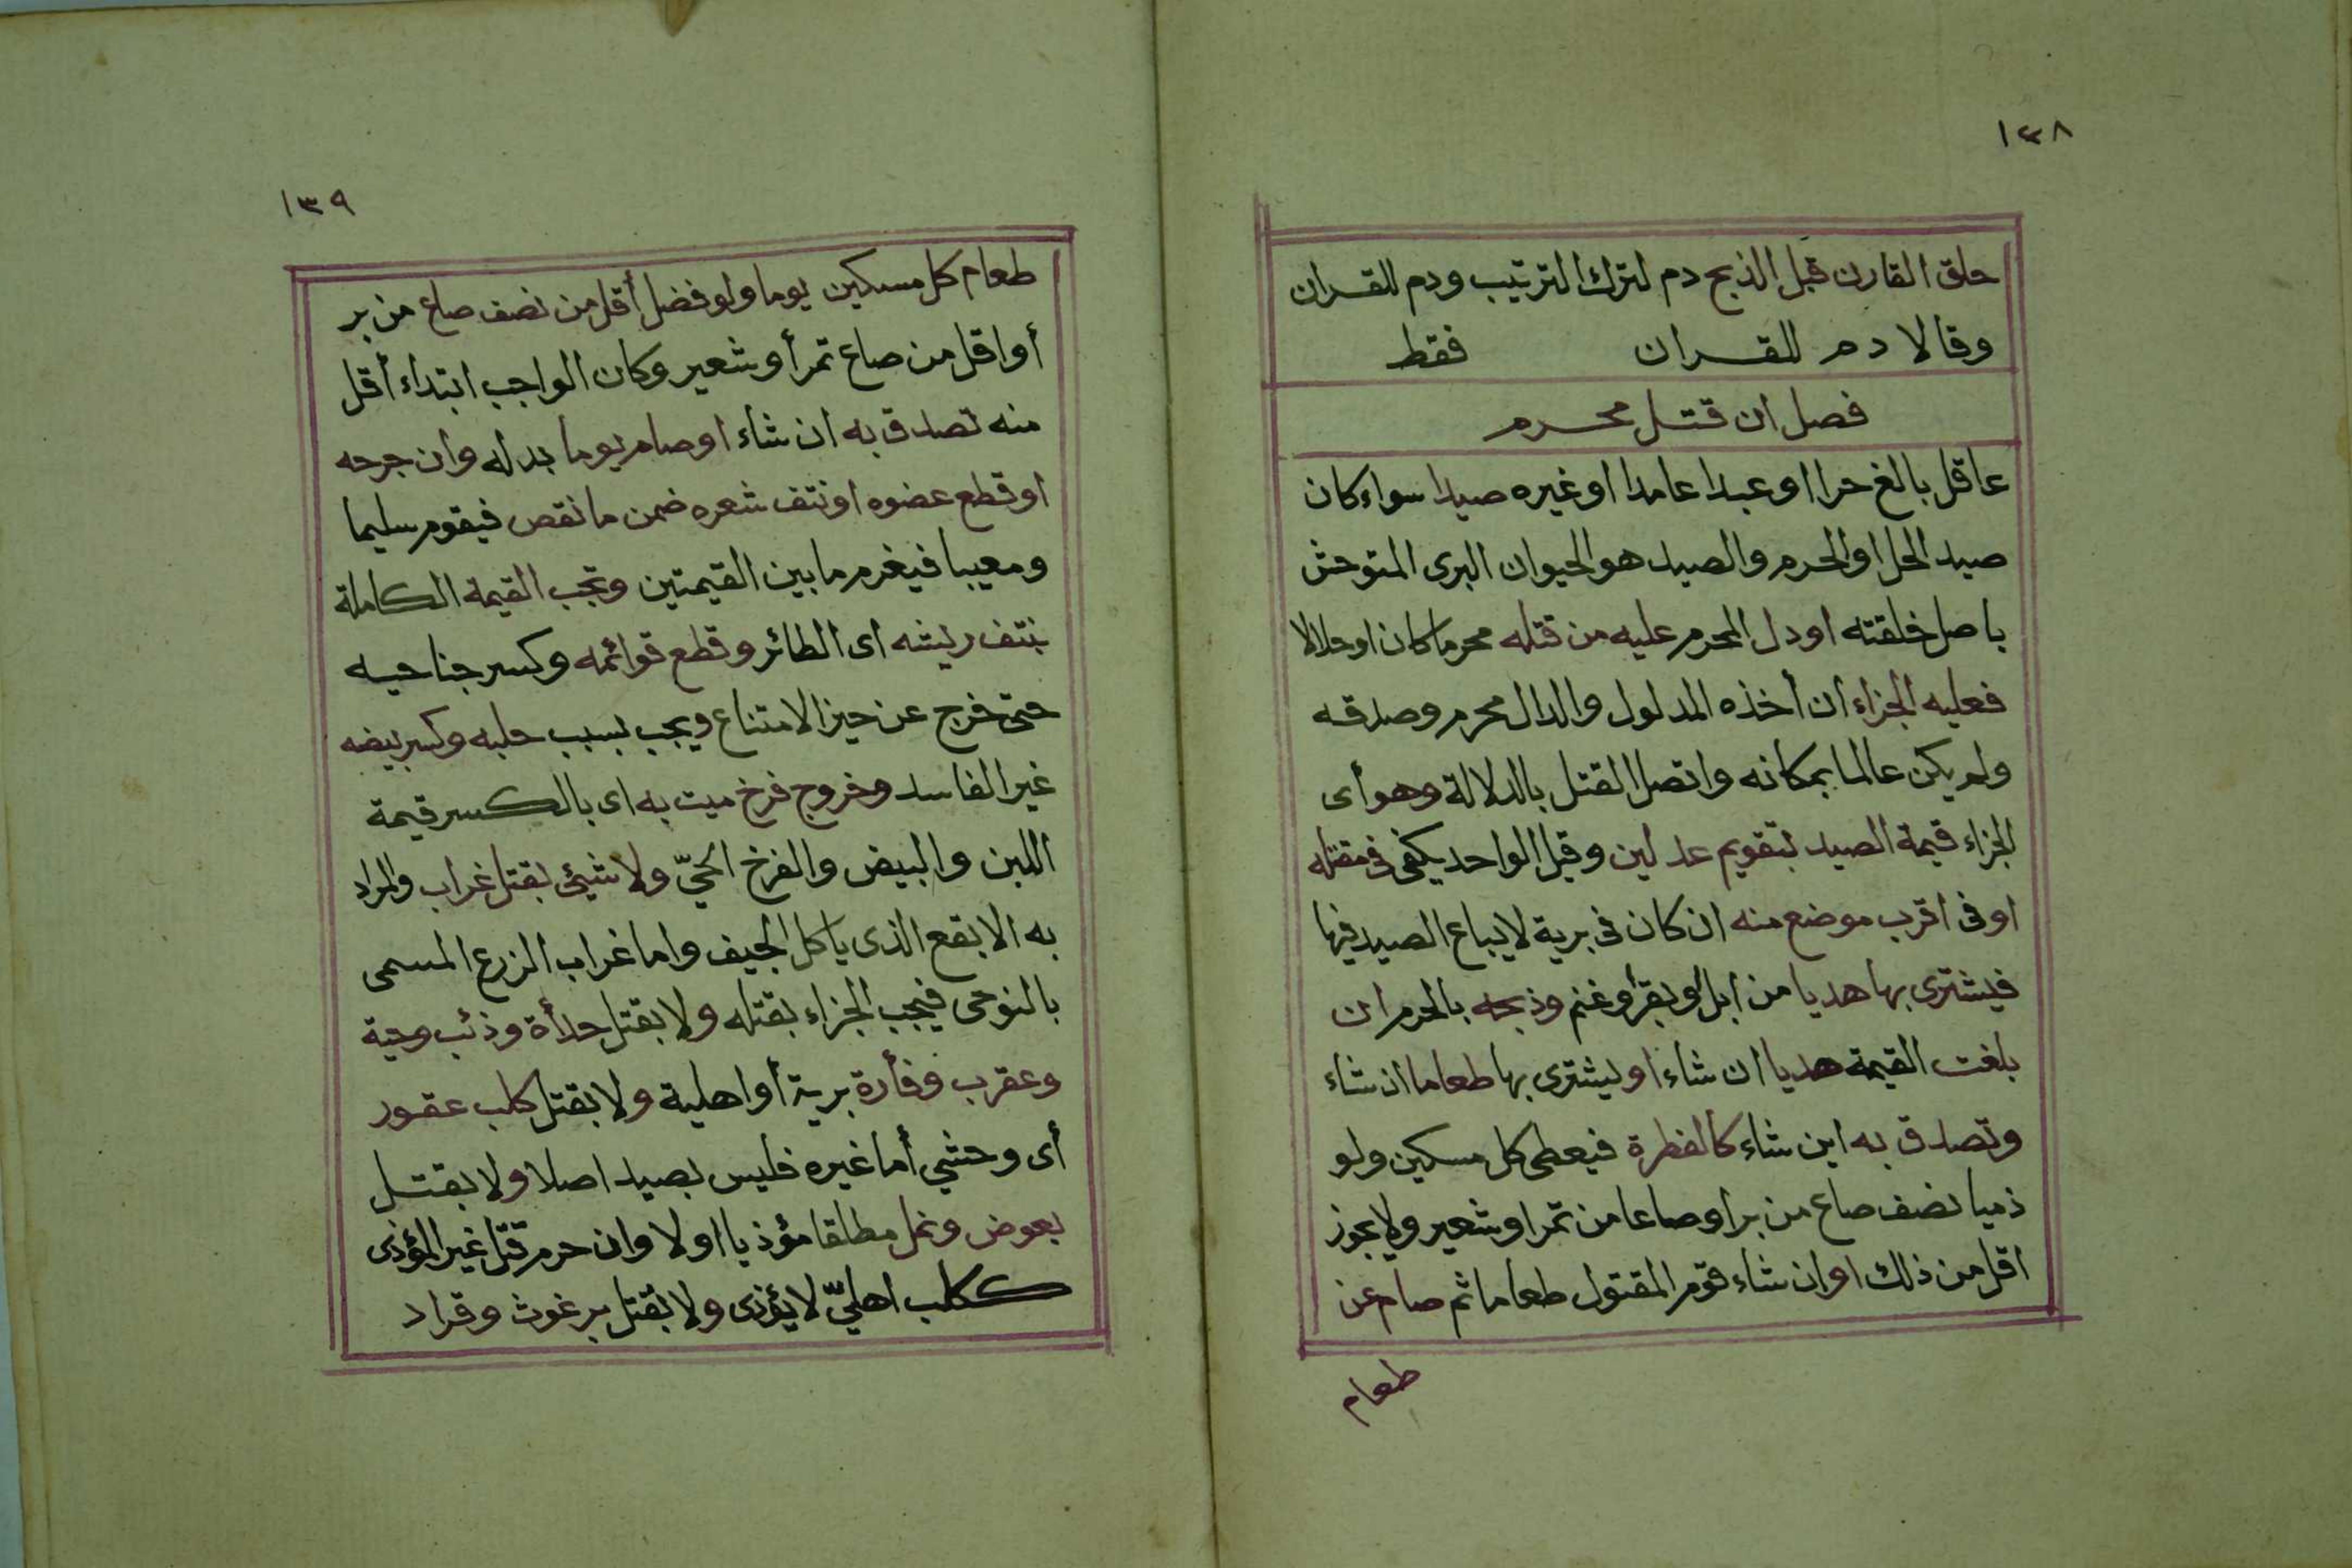 ١٣٨
حلق القارن قبل الذبح دم لترك الترتيب ودم للقران
وقالا دم للقران فقط
فصل ان قتل محرم
عاقل بالغ حرا او عبدا عامدا او غيره صيدا سواء كان
صيد الحل او الحرم والصيد هو الحيوان البرى المتوحش
باصل خلقته او دل المحرم عليه من قتله محرما كان او حلالا
فعليه الجزاء ان أخذه المدلول والدال محرم وصدقه
ولم يكن عالما بمكانه واتصل القتل بالدلالة وهو أى
الجزاء قيمة الصيد بتقويم عدلين وقيل الواحد يكفى فى مقتله
او فى اقرب موضع منه ان كان فى برية لا يباع الصيد فيها
فيشترى بها هديا من ابل او بقر أو غنم وذبحه بالحرم ان
بلغت القيمة هديا ان شاء او يشترى بها طعاما ان شاء
وتصدق به اين شاء كالفطرة فيعطى كل مسكين ولو
ذميا نصف صاع من بر او صاعا من تمر او شعير ولا يجوز
اقل من ذلك او ان شاء قوم المقتول طعاما ثم صام عن
طعام
١٣٩
طعام كل مسكين يوما ولو فضل أقل من نصف صاع من بر
أو اقل من صاع تمر أو شعير وكان الواجب ابتداء أقل
منه تصدق به ان شاء او صام يوما بدله وان جرحه
او قطع عضوه او نتف شعره ضمن ما نقص فيقوم سليما
ومعيبا فيغرم ما بين القيمتين وتجب القيمة الكاملة
بنتف ريشه اى الطائر وقطع قوائمه وكسر جناحيه
حتى خرج عن حيز الامتناع ويجب بسبب حلبه وكسر بيضه
غير الفاسد وخروج فرخ ميت به اى بالكسر قيمة
اللبن والبيض والفرخ الحيّ ولا شيئ بقتل غراب والمراد
به الابقع الذى يأكل الجيف واما غراب الزرع المسمى
بالنوحى فيجب الجزاء بقتله ولا بقتل حدأة وذئب وحية
وعقرب وفأرة برية أو اهلية ولا بقتل كلب عقور
أى وحشي أما غيره فليس بصيد اصلا ولا بقتل
بعوض ونمل مطلقا مؤذيا او لا وان حرم قتل غير المؤذى
ككلب اهليّ لا يؤذى ولا بقتل برغوث وقراد